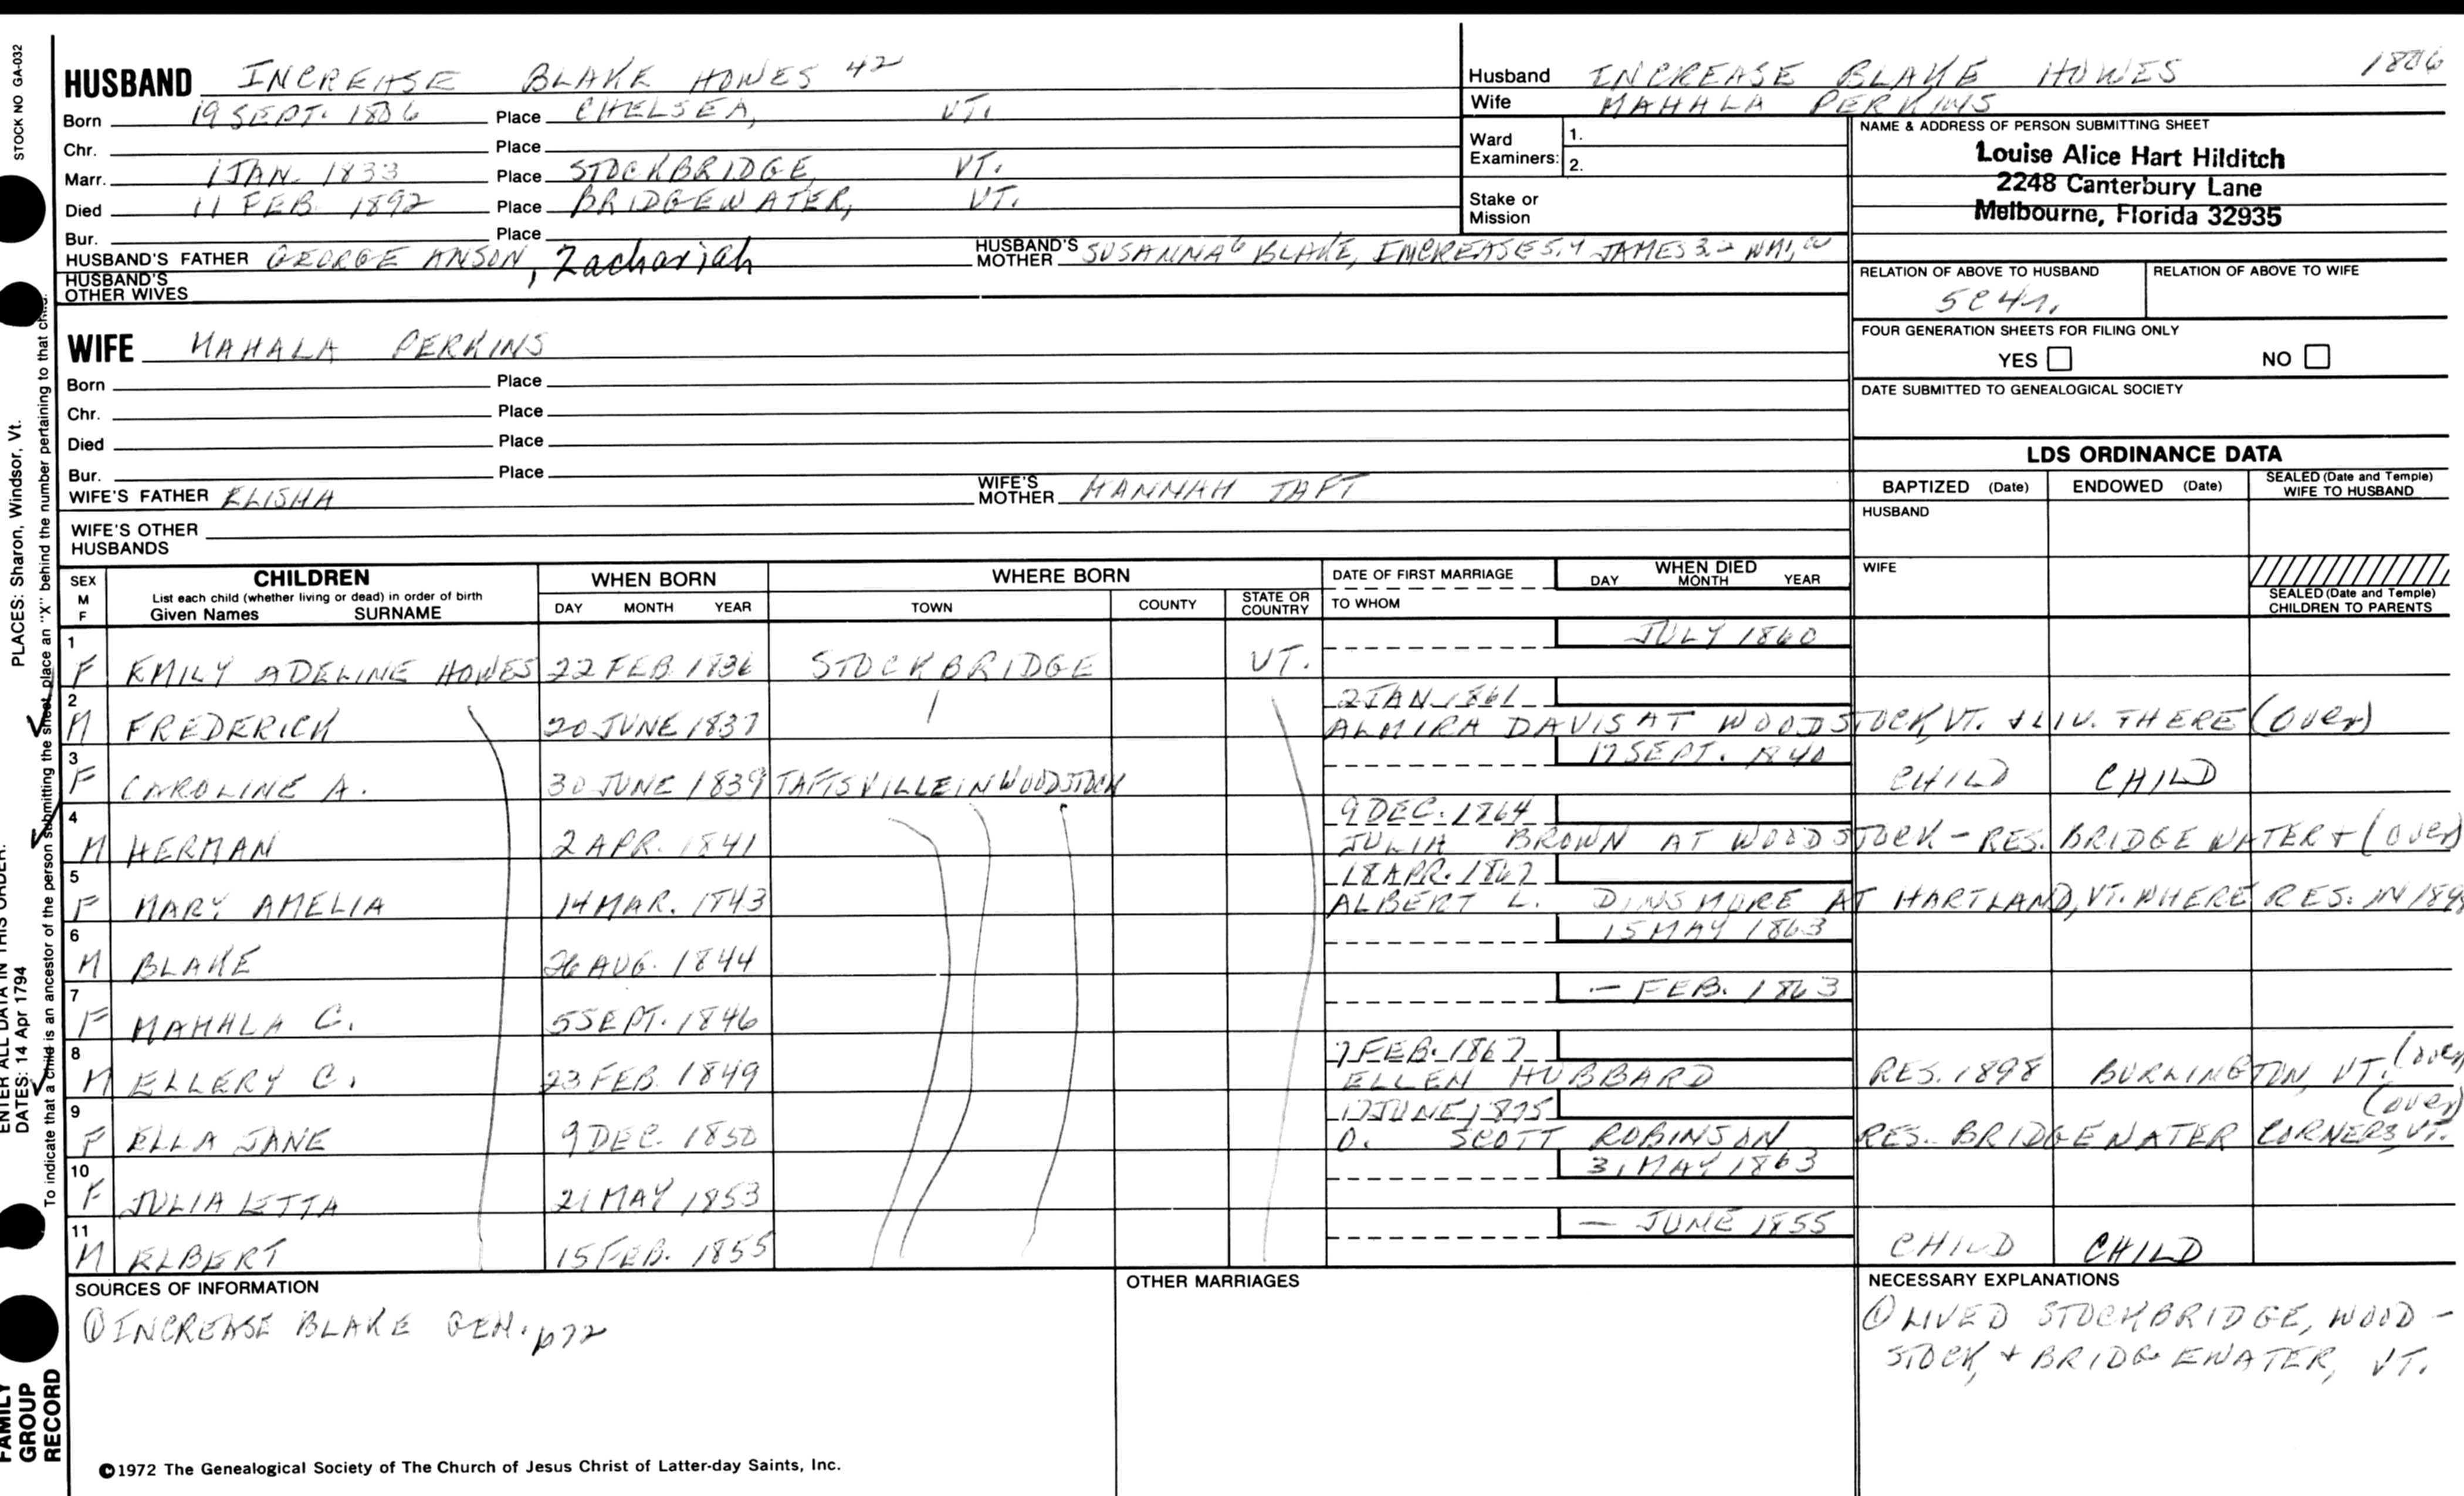 STOCK NO GA-032
PLACES: Sharon, Windsor, Vt.
ENTER ALL DATA IN THIS ORDER:
DATES: 14 Apr 1794
To indicate that a child is an ancestor of the person submitting the sheet, place an "X" behind the number pertaining to that child.
FAMILY
GROUP
RECORD
HUSBAND INCREASE BLAKE HOWES 42
Born 19 SEPT. 1806 Place CHELSEA, VT.
Chr. Place
Marr. 1 JAN. 1833 Place STOCKBRIDGE, VT.
Died 11 FEB. 1892 Place BRIDGEWATER, VT.
Bur. Place
HUSBAND'S FATHER GEORGE ANSON, Zachariah HUSBAND'S MOTHER SUSANNA6 BLAKE, INCREASE5,4 JAMES3,2 WM1
HUSBAND'S
OTHER WIVES
WIFE MAHALA PERKINS
Born Place
Chr. Place
Died Place
Bur. Place
WIFE'S FATHER ELISHA WIFE'S MOTHER HANNAH TAFT
WIFE'S OTHER
HUSBANDS
Husband INCREASE BLAKE HOWES 1806
Wife MAHALA PERKINS
Ward
Examiners: 1.
2.
Stake or
Mission
NAME & ADDRESS OF PERSON SUBMITTING SHEET
Louise Alice Hart Hilditch
2248 Canterbury Lane
Melbourne, Florida 32935
RELATION OF ABOVE TO HUSBAND RELATION OF ABOVE TO WIFE
5C4r.
FOUR GENERATION SHEETS FOR FILING ONLY
YES NO
DATE SUBMITTED TO GENEALOGICAL SOCIETY
LDS ORDINANCE DATA
BAPTIZED (Date) ENDOWED (Date) SEALED (Date and Temple) WIFE TO HUSBAND
HUSBAND
WIFE
SEALED (Date and Temple)
CHILDREN TO PARENTS
SEX M F CHILDREN WHEN BORN WHERE BORN DATE OF FIRST MARRIAGE WHEN DIED
List each child (whether living or dead) in order of birth
Given Names SURNAME DAY MONTH YEAR TOWN COUNTY STATE OR COUNTRY TO WHOM DAY MONTH YEAR
1 JULY 1860
F EMILY ADELINE HOWES 22 FEB. 1836 STOCKBRIDGE VT.
2 2 JAN. 1861
M FREDERICK 20 JUNE 1837 ALMIRA DAVIS AT WOODSTOCK, VT. & LIV. THERE (over)
3 17 SEPT. 1840
F CAROLINE A. 30 JUNE 1839 TAFTSVILLE IN WOODSTOCK CHILD CHILD
4 9 DEC. 1864
M HERMAN 2 APR. 1841 JULIA BROWN AT WOODSTOCK - RES. BRIDGEWATER + (over)
5 18 APR. 1867
F MARY AMELIA 14 MAR. 1843 ALBERT L. DINSMORE AT HARTLAND, VT. WHERE RES. IN 1898
6 15 MAY 1863
M BLAKE 26 AUG. 1844
7 — FEB. 1863
F MAHALA C. 5 SEPT. 1846
8 7 FEB. 1867
M ELLERY C. 23 FEB. 1849 ELLEN HUBBARD RES. 1898 BURLINGTON, VT. (over)
9 17 JUNE, 1875 (over)
F ELLA JANE 9 DEC. 1850 O. SCOTT ROBINSON RES. BRIDGEWATER CORNERS VT.
10 31 MAY 1863
F JULIA ETTA 21 MAY 1853
11 — JUNE 1855
M ELBERT 15 FEB. 1855 CHILD CHILD
SOURCES OF INFORMATION OTHER MARRIAGES NECESSARY EXPLANATIONS
① INCREASE BLAKE GEN. p72
① LIVED STOCKBRIDGE, WOOD-
STOCK, + BRIDGEWATER, VT.
©1972 The Genealogical Society of The Church of Jesus Christ of Latter-day Saints, Inc.